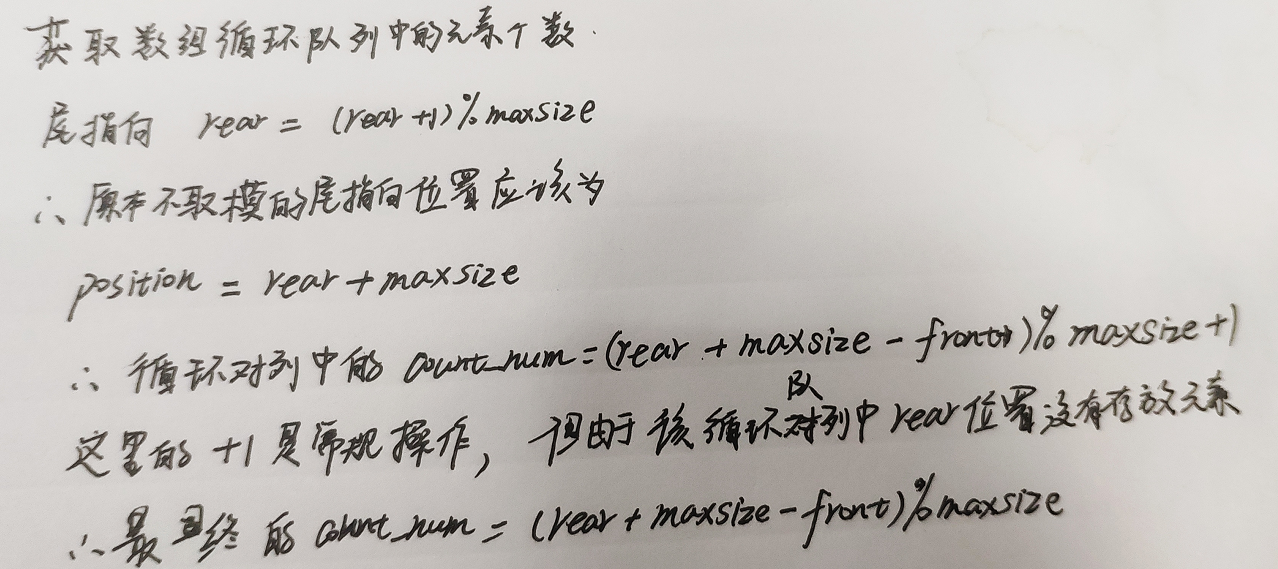 获取数组循环队列中的元素个数.
尾指向 rear = (rear+1)%maxsize
∴ 原本不取模的尾指向位置应该为
position = rear + maxsize
∴ 循环对列中的 count_num = (rear + maxsize - front)% maxsize+1
这里的 +1 是常规操作, 但由于该循环队列中rear位置没有存放元素
∴ 最终的 count_num = (rear + maxsize - front)%maxsize